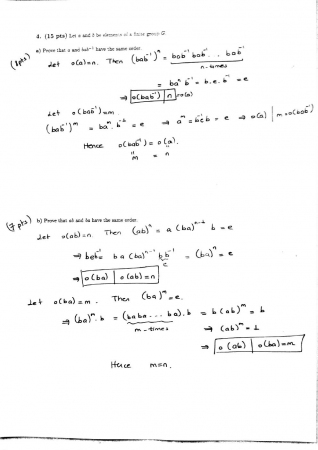 4. (15 pts) Let a and b be elements of a finite group G.
a) Prove that a and bab⁻¹ have the same order.
(8 pts) Let o(a)=n. Then (bab⁻¹)ⁿ = bab⁻¹bab⁻¹ ... bab⁻¹
n-times
= baⁿb⁻¹ = b.e.b⁻¹ = e
⇒ o(bab⁻¹) | n = o(a)
Let o(bab⁻¹)=m
(bab⁻¹)ᵐ = baᵐ.b⁻¹ = e ⇒ aᵐ = b⁻¹eb = e ⇒ o(a) | m = o(bab⁻¹)
Hence o(bab⁻¹) = o(a).
m = n
(7 pts) b) Prove that ab and ba have the same order.
Let o(ab)=n. Then (ab)ⁿ = a(ba)ⁿ⁻¹b = e
⇒ beb⁻¹ = ba(ba)ⁿ⁻¹bb⁻¹ = (ba)ⁿ = e
e
⇒ o(ba) | o(ab)=n
Let o(ba)=m. Then (ba)ᵐ=e.
⇒ (ba)ᵐ.b = (baba...ba).b = b(ab)ᵐ = b
m-times ⇒ (ab)ᵐ = 1
⇒ o(ab) | o(ba)=m
Hence m=n.